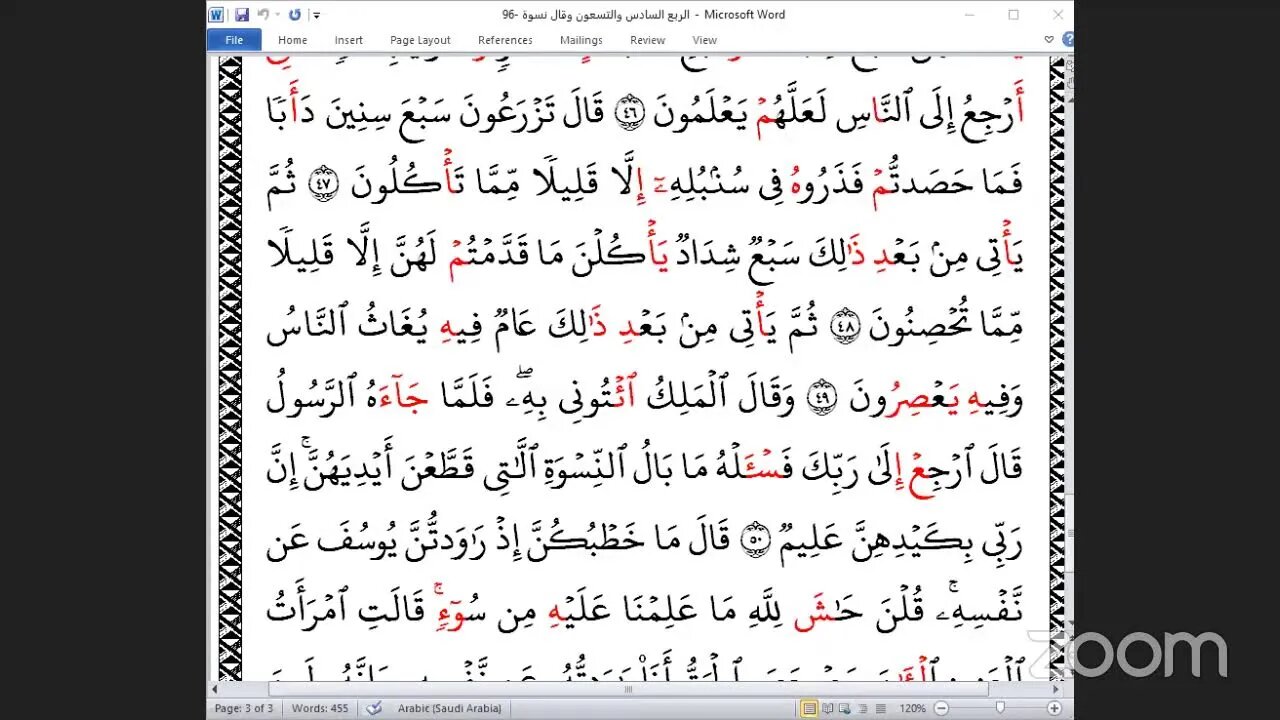 الربع السادس والتسعون وقال نسوة -96 - Microsoft Word
File Home Insert Page Layout References Mailings Review View
أَرْجِعُ إِلَى ٱلنَّاسِ لَعَلَّهُمْ يَعْلَمُونَ ٤٦ قَالَ تَزْرَعُونَ سَبْعَ سِنِينَ دَأَبًا
فَمَا حَصَدتُّمْ فَذَرُوهُ فِى سُنۢبُلِهِۦٓ إِلَّا قَلِيلًا مِّمَّا تَأْكُلُونَ ٤٧ ثُمَّ
يَأْتِى مِنۢ بَعْدِ ذَٰلِكَ سَبْعٌ شِدَادٌ يَأْكُلْنَ مَا قَدَّمْتُمْ لَهُنَّ إِلَّا قَلِيلًا
مِّمَّا تُحْصِنُونَ ٤٨ ثُمَّ يَأْتِى مِنۢ بَعْدِ ذَٰلِكَ عَامٌ فِيهِ يُغَاثُ ٱلنَّاسُ
وَفِيهِ يَعْصِرُونَ ٤٩ وَقَالَ ٱلْمَلِكُ ٱئْتُونِى بِهِۦۖ فَلَمَّا جَآءَهُ ٱلرَّسُولُ
قَالَ ٱرْجِعْ إِلَىٰ رَبِّكَ فَسْـَٔلْهُ مَا بَالُ ٱلنِّسْوَةِ ٱلَّٰتِى قَطَّعْنَ أَيْدِيَهُنَّۚ إِنَّ
رَبِّى بِكَيْدِهِنَّ عَلِيمٌ ٥٠ قَالَ مَا خَطْبُكُنَّ إِذْ رَٰوَدتُّنَّ يُوسُفَ عَن
نَّفْسِهِۦۚ قُلْنَ حَٰشَ لِلَّهِ مَا عَلِمْنَا عَلَيْهِ مِن سُوٓءٍۚ قَالَتِ ٱمْرَأَتُ
zoom
Page: 3 of 3 Words: 455 Arabic (Saudi Arabia) 120%